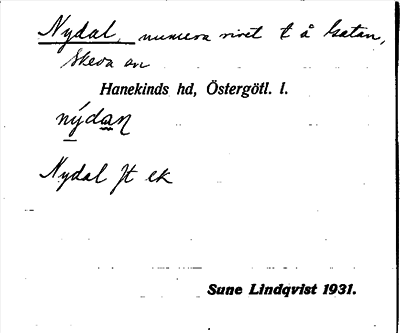 Nydal, numera rivet t å Gatan,
Skeda sn
Hanekinds hd, Östergötl. l.
nýdaɳ
Nydal Jt ek
Sune Lindqvist 1931.